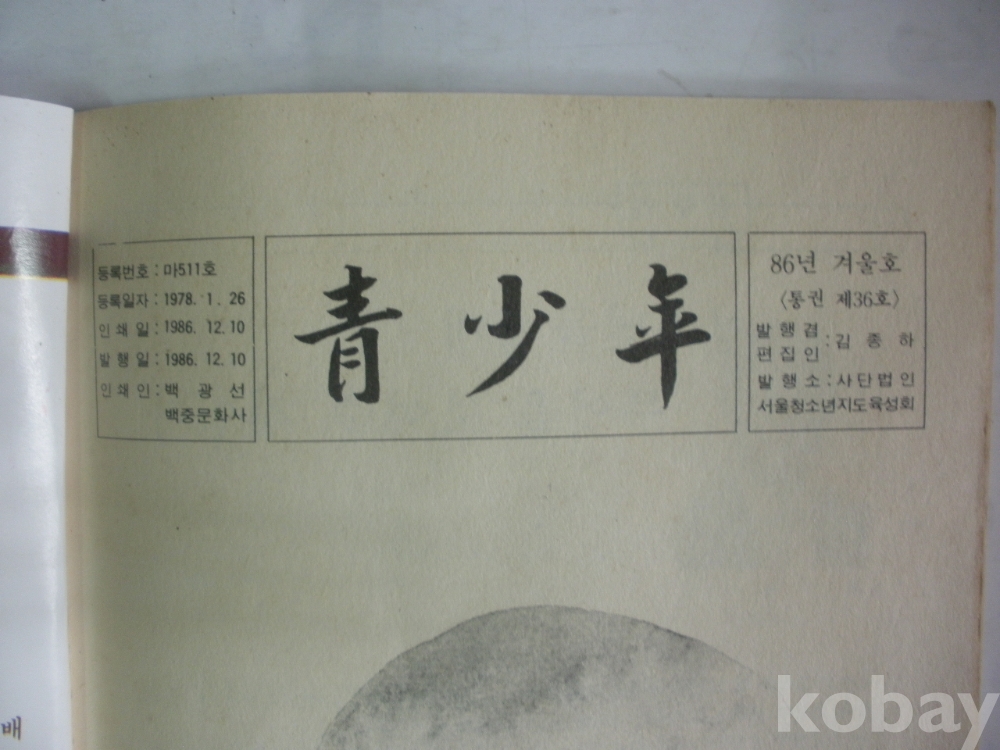 등록번호 : 마511호
등록일자 : 1978. 1. 26
인 쇄 일 : 1986. 12. 10
발 행 일 : 1986. 12. 10
인 쇄 인 : 백 광 선
백중문화사
青少年
86년 겨울호
〈통권 제36호〉
발 행 겸
편 집 인 : 김 종 하
발 행 소 : 사 단 법 인
서울청소년지도육성회
배
kobay